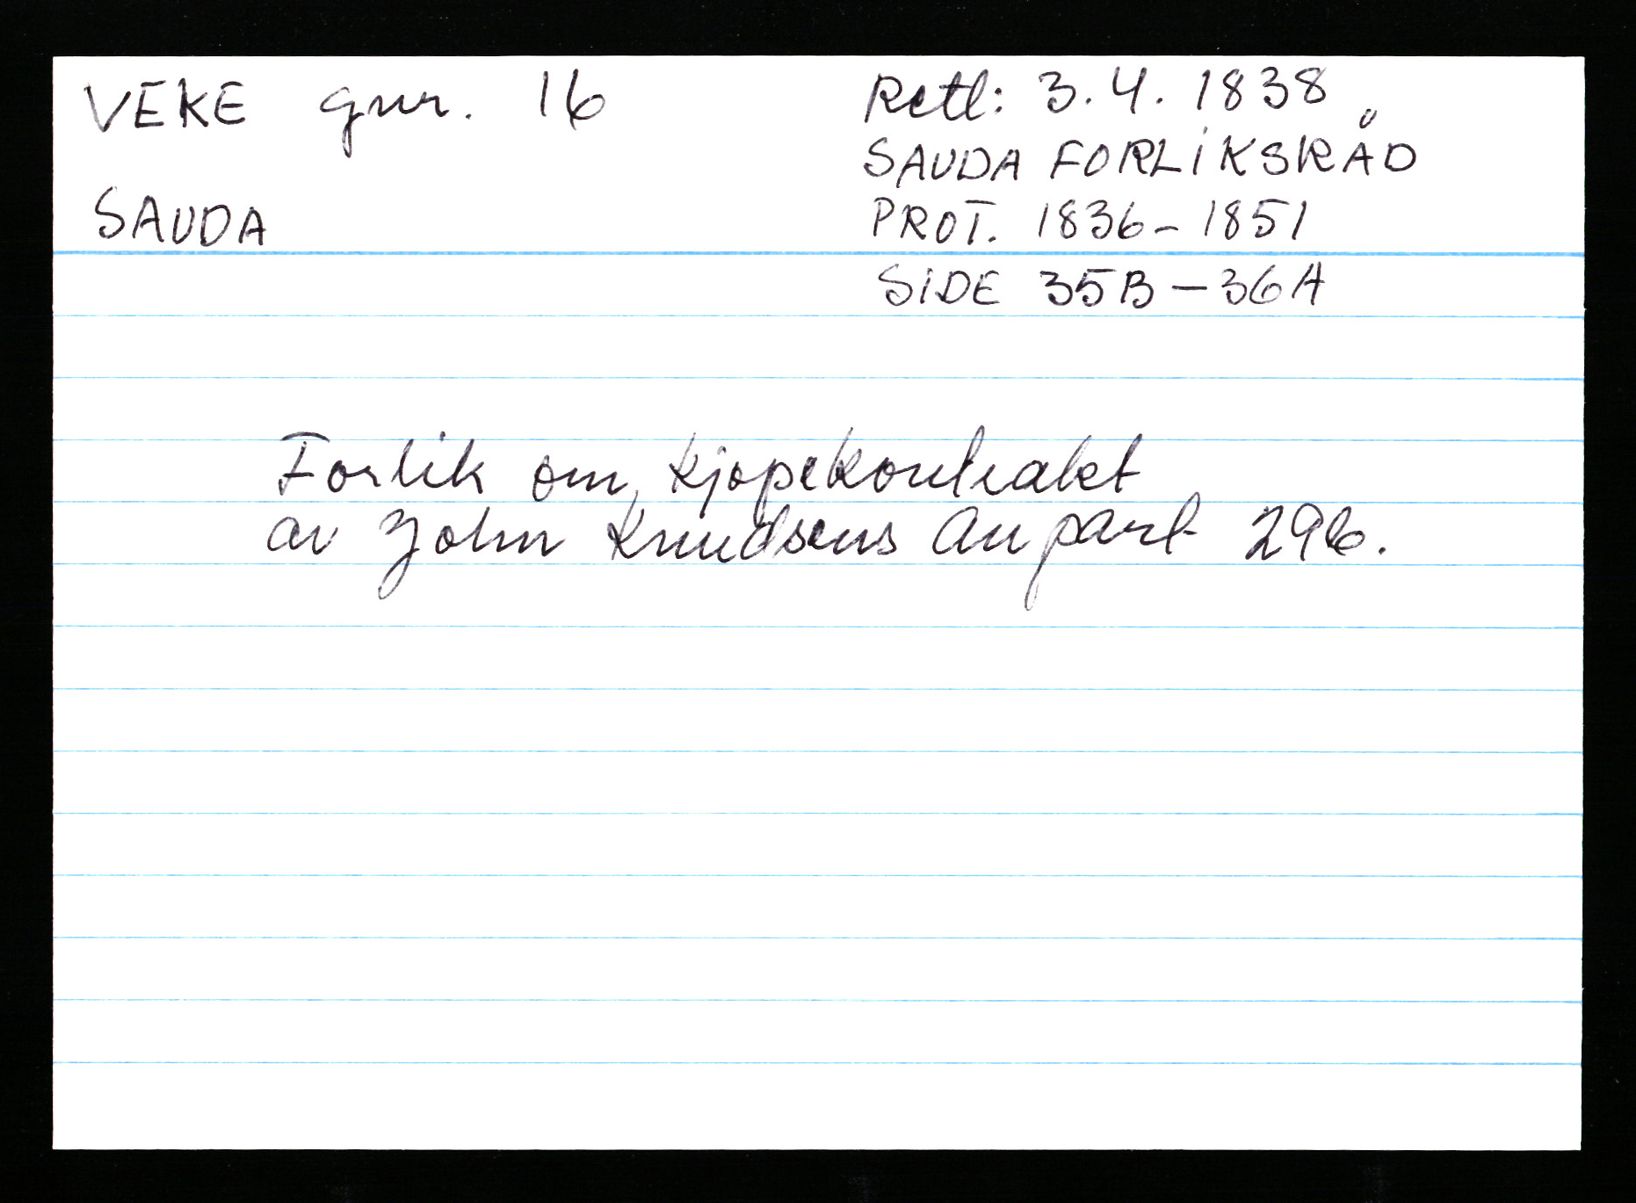 VEKE gnr. 16
SAUDA
Retl: 3.4. 1838
SAUDA FORLIKSRÅD
PROT. 1836-1851
SIDE 35B-36A
Forlik om kjøpekontrakt
av John Knudsens anpart 296.